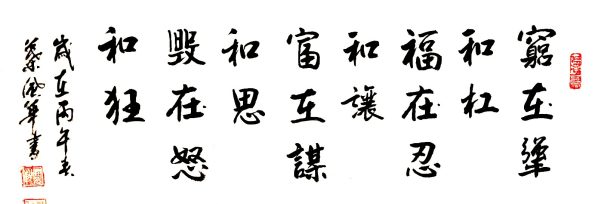 窮在犟
和杠
福在忍
和讓
富在謀
和思
毀在怒
和狂
歲在丙午春
書